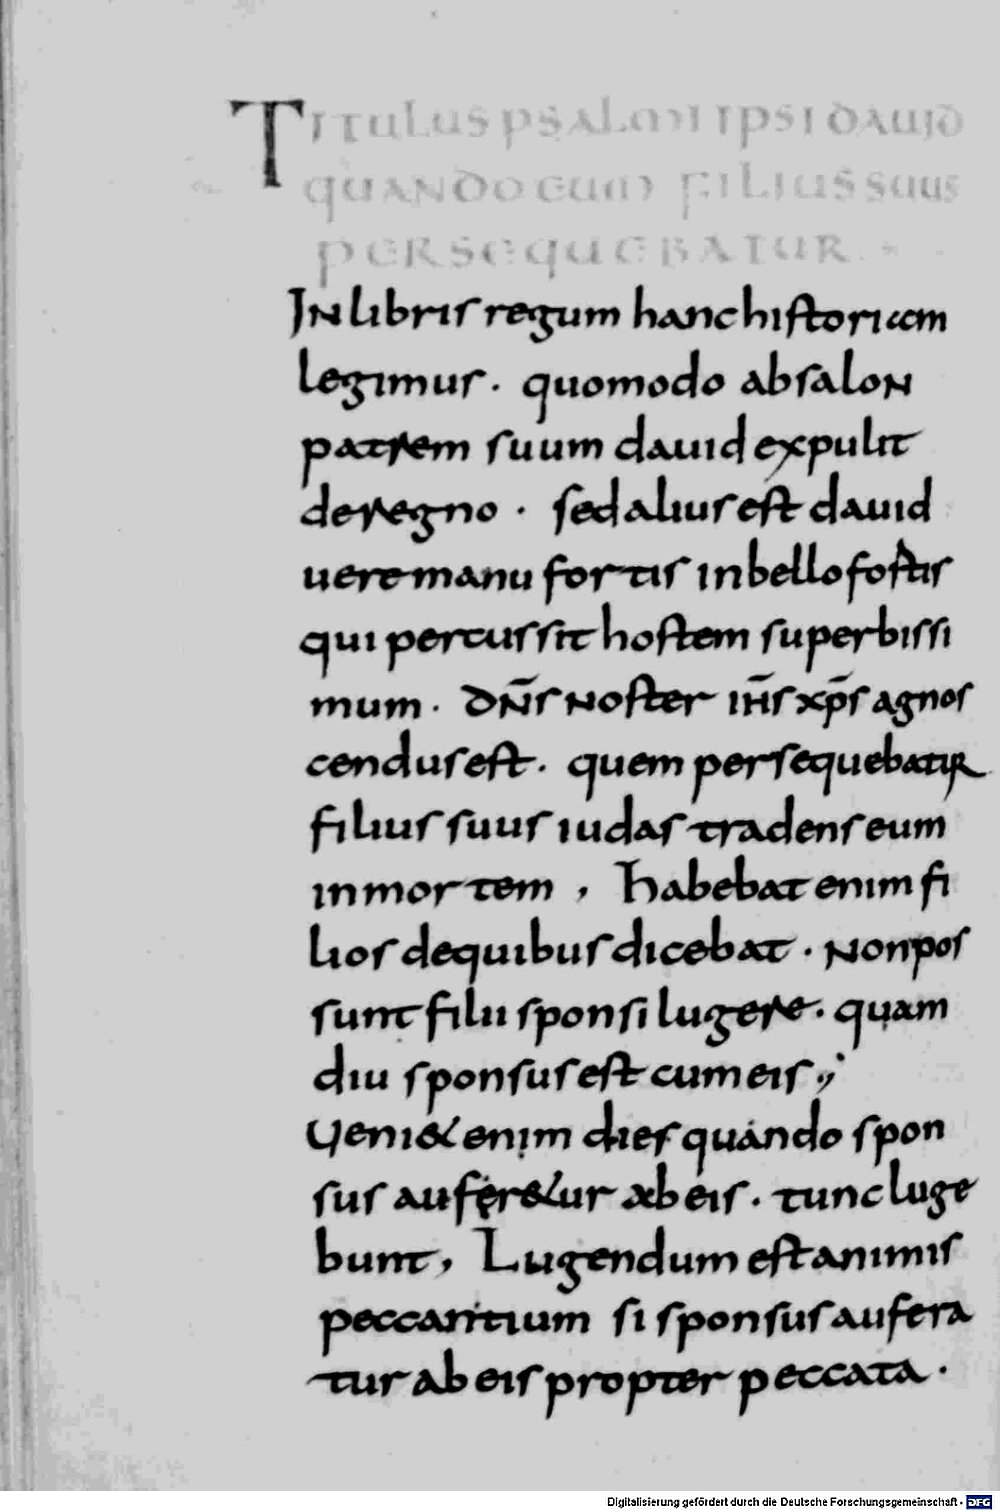 TITULUS PSALMI IPSI DAUID
QUANDO EUM FILIUS SUUS
PERSEQUEBATUR.
IN libris regum hanc historiam
legimus. quomodo absalon
patrem suum dauid expulit
de regno. sed alius est dauid
uere manu fortis in bello fostis
qui percussit hostem superbissi
mum. dn̄s noster ih̄s xp̄s agnos
cendus est. quem persequebatur
filius suus iudas tradens eum
in mortem, habebat enim fi
lios de quibus dicebat. non pos
sunt filii sponsi lugere. quam
diu sponsus est cum eis;
Ueni& enim dies quando spon
sus aufer&ur ab eis. tunc luge
bunt, Lugendum est animis
peccantium si sponsus aufera
tur ab eis propter peccata.
Digitalisierung gefördert durch die Deutsche Forschungsgemeinschaft - DFG